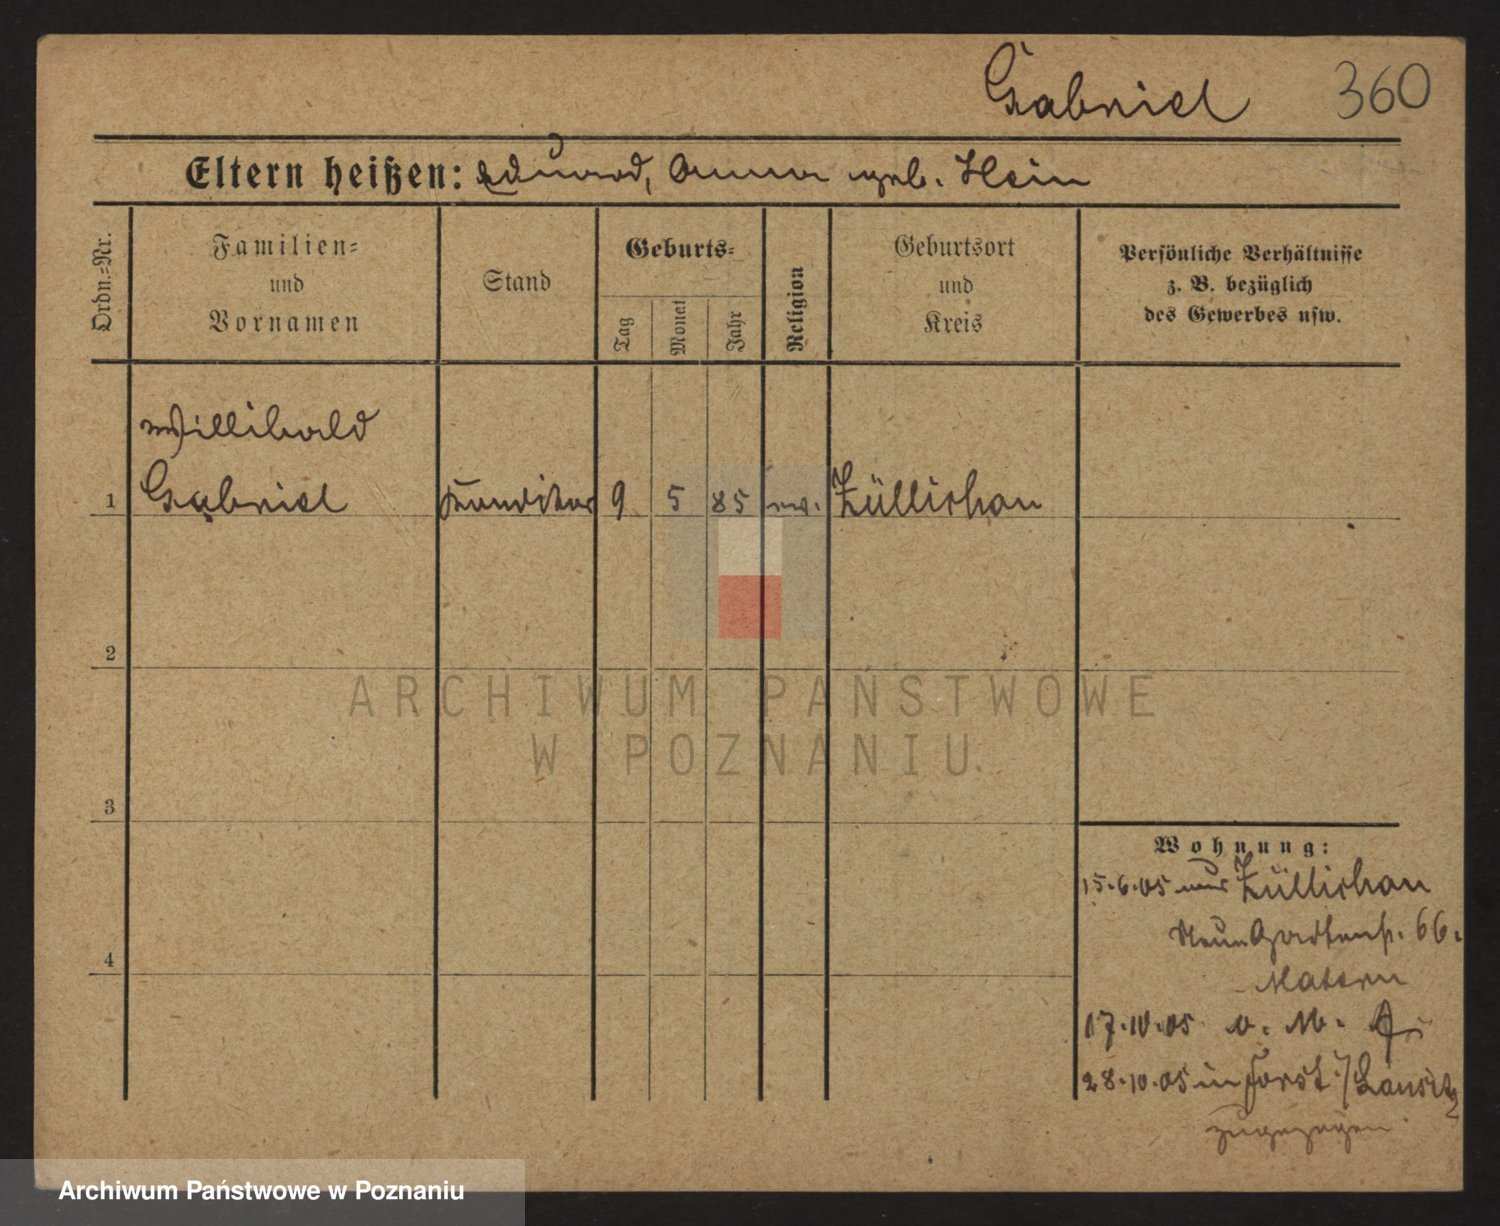 Gabriel 360
Eltern heißen: Eduard, Anna geb. Hein
Ordn.-Nr.
Familien-
und
Vornamen
Stand
Geburts-
Tag
Monat
Jahr
Religion
Geburtsort
und
Kreis
Persönliche Verhältnisse
z. B. bezüglich
des Gewerbes usw.
Willibald
1 Gabriel Konditor 9 5 85 ev. Züllichau
2
ARCHIWUM PAŃSTWOWE
W POZNANIU
3
Wohnung:
15.6.05 aus Züllichau
Neue Gartenstr. 66.
Matern
4
17.10.05 o. M.
28.10.05 in Forst i/Lausitz
zugezogen
Archiwum Państwowe w Poznaniu